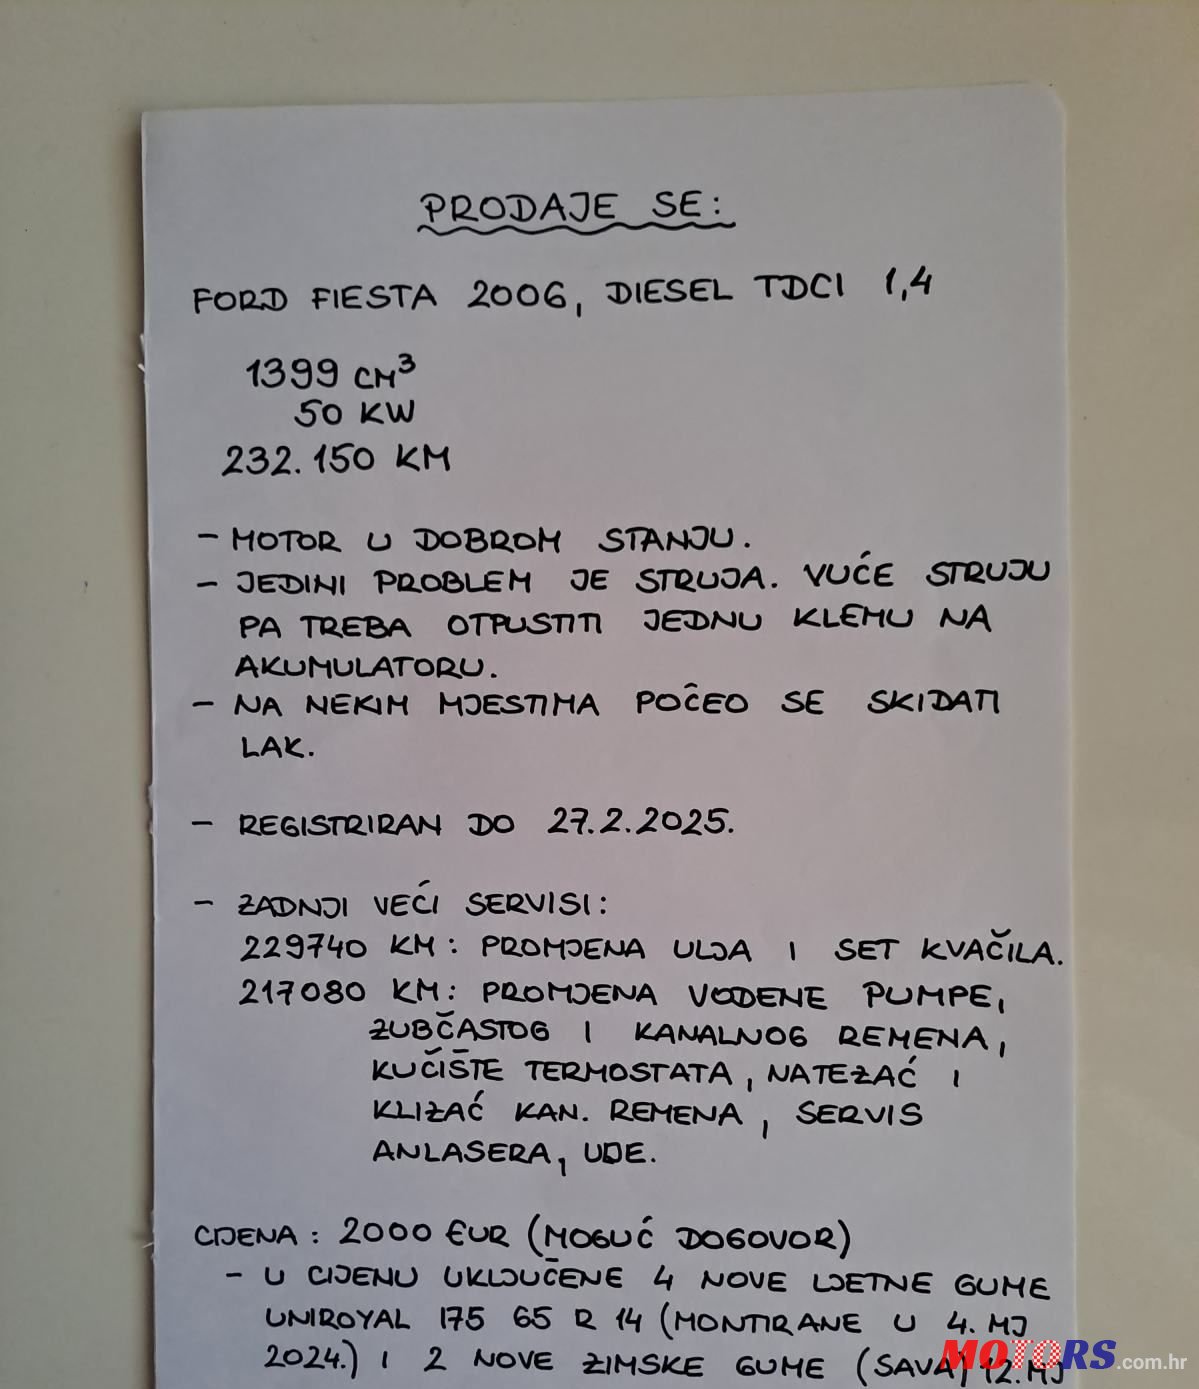 PRODAJE SE:
FORD FIESTA 2006, DIESEL TDCI 1,4
1399 CM³
50 KW
232.150 KM
- MOTOR U DOBROM STANJU.
- JEDINI PROBLEM JE STRUJA. VUĆE STRUJU
PA TREBA OTPUSTITI JEDNU KLEMU NA
AKUMULATORU.
- NA NEKIM MJESTIMA POČEO SE SKIDATI
LAK.
- REGISTRIRAN DO 27.2.2025.
- ZADNJI VEĆI SERVISI:
229740 KM: PROMJENA ULJA I SET KVAČILA.
217080 KM: PROMJENA VODENE PUMPE,
ZUBČASTOG I KANALNOG REMENA,
KUČIŠTE TERMOSTATA, NATEZAĆ I
KLIZAĆ KAN. REMENA, SERVIS
ANLASERA, ULJE.
CIJENA: 2000 EUR (MOGUĆ DOGOVOR)
- U CIJENU UKLJUČENE 4 NOVE LJETNE GUME
UNIROYAL 175 65 R 14 (MONTIRANE U 4. MJ
2024.) I 2 NOVE ZIMSKE GUME (SAVA) 12. MJ
MOTORS.com.hr